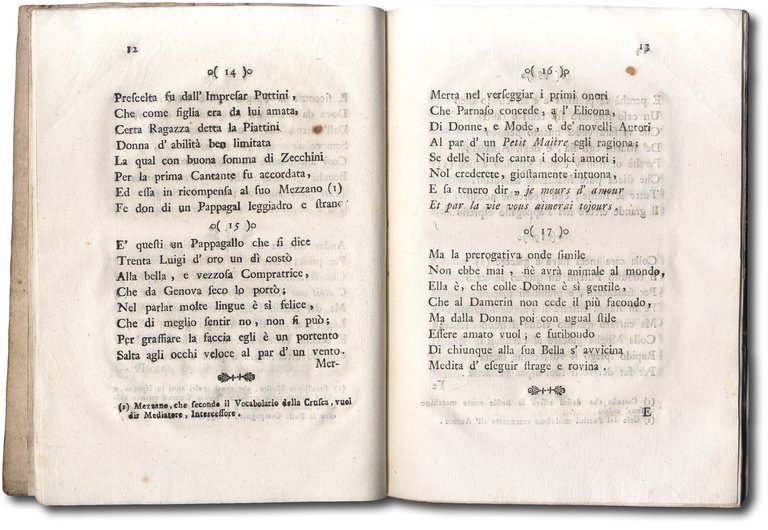 12
o( 14 )o
Prescelta fu dall' Impresar Puttini,
Che come figlia era da lui amata,
Certa Ragazza detta la Piattini
Donna d' abilità ben limitata
La qual con buona somma di Zecchini
Per la prima Cantante fu accordata,
Ed essa in ricompensa al suo Mezzano (1)
Fe don di un Pappagal leggiadro e strano
o( 15 )o
E' questi un Pappagallo che si dice
Trenta Luigi d' oro un dì costò
Alla bella, e vezzosa Compratrice,
Che da Genova seco lo portò;
Nel parlar molte lingue è sì felice,
Che di meglio sentir no, non si può;
Per graffiare la faccia egli è un portento
Salta agli occhi veloce al par d' un vento.
Mer-
(1) Mezzano, che secondo il Vocabolario della Crusca, vuol
dir Mediatore, Intercessore.
13
o( 16 )o
Merta nel verseggiar i primi onori
Che Parnaso concede, a l' Elicona,
Di Donne, e Mode, e de' novelli Autori
Al par d' un Petit Maitre egli ragiona;
Se delle Ninfe canta i dolci amori;
Nol crederete, giustamente intuona,
E sa tenero dir „ je meurs d' amour
Et par la vie vous aimerai tojours.
o( 17 )o
Ma la prerogativa onde simile
Non ebbe mai, nè avrà animale al mondo,
Ella è, che colle Donne è sì gentile,
Che al Damerin non cede il più facondo,
Ma dalla Donna poi con ugual stile
Essere amato vuol; e furibondo
Di chiunque alla sua Bella s' avvicina
Medita d' eseguir strage e rovina.
E